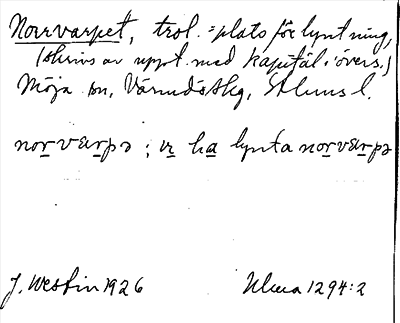 Norrvarpet, trol. = plats för lyntning,
(skrives av uppt. med kapitäl i övers.)
Möja sn, Värmdö skg, Sthlms l.
norværpə ; vı ha lynta norværpə
J. Westin 1926 Ulma 1294:2